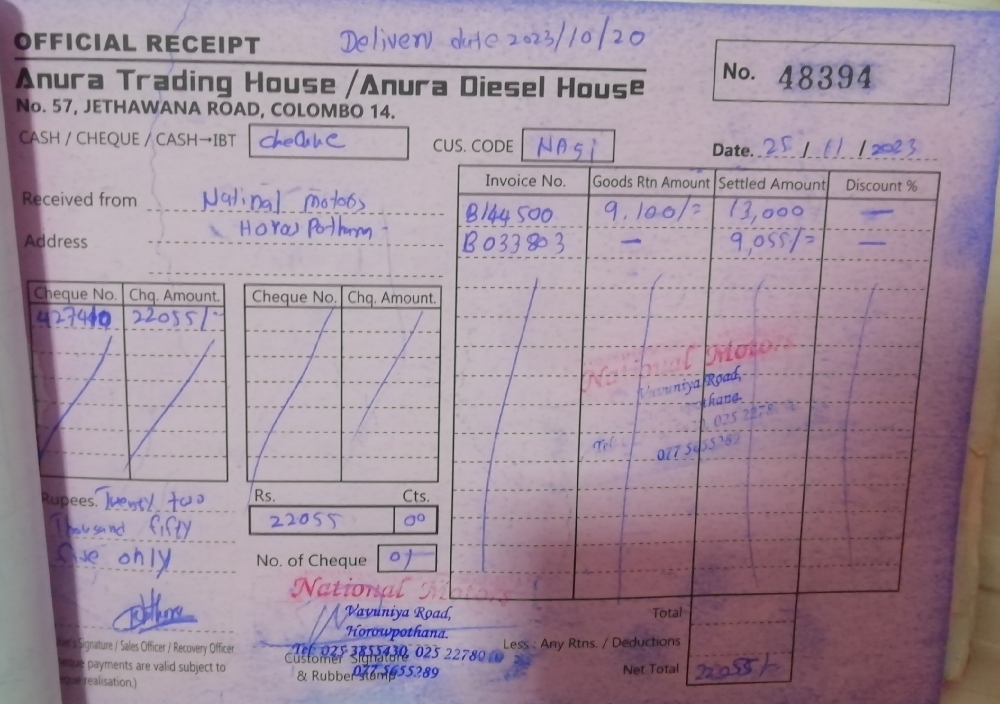 OFFICIAL RECEIPT
Delivery date 2023/10/20
Anura Trading House /Anura Diesel House
No. 57, JETHAWANA ROAD, COLOMBO 14.
No. 48394
CASH / CHEQUE / CASH→IBT cheque
CUS. CODE
Date. 25 / 11 / 2023
Received from National motors
Address
Invoice No. Goods Rtn Amount Settled Amount Discount %
B144500 9,100/= 13,000 —
B033803 — 9,055/= —
Cheque No. Chq. Amount. Cheque No. Chq. Amount.
22055/-
National Motors
Vavuniya Road,
025 2278
Tel
077 5655289
Rupees. Twenty two
Thousand fifty
five only
Rs. Cts.
22055 00
No. of Cheque 01
National Motors
Vavuniya Road,
Horowpothana.
Tel: 025 3855430, 025 22780
077 5655289
Signature / Sales Officer / Recovery Officer
payments are valid subject to
realisation.)
Customer Signature
& Rubber stamp
Total
Less : Any Rtns. / Deductions
Net Total 22055/-